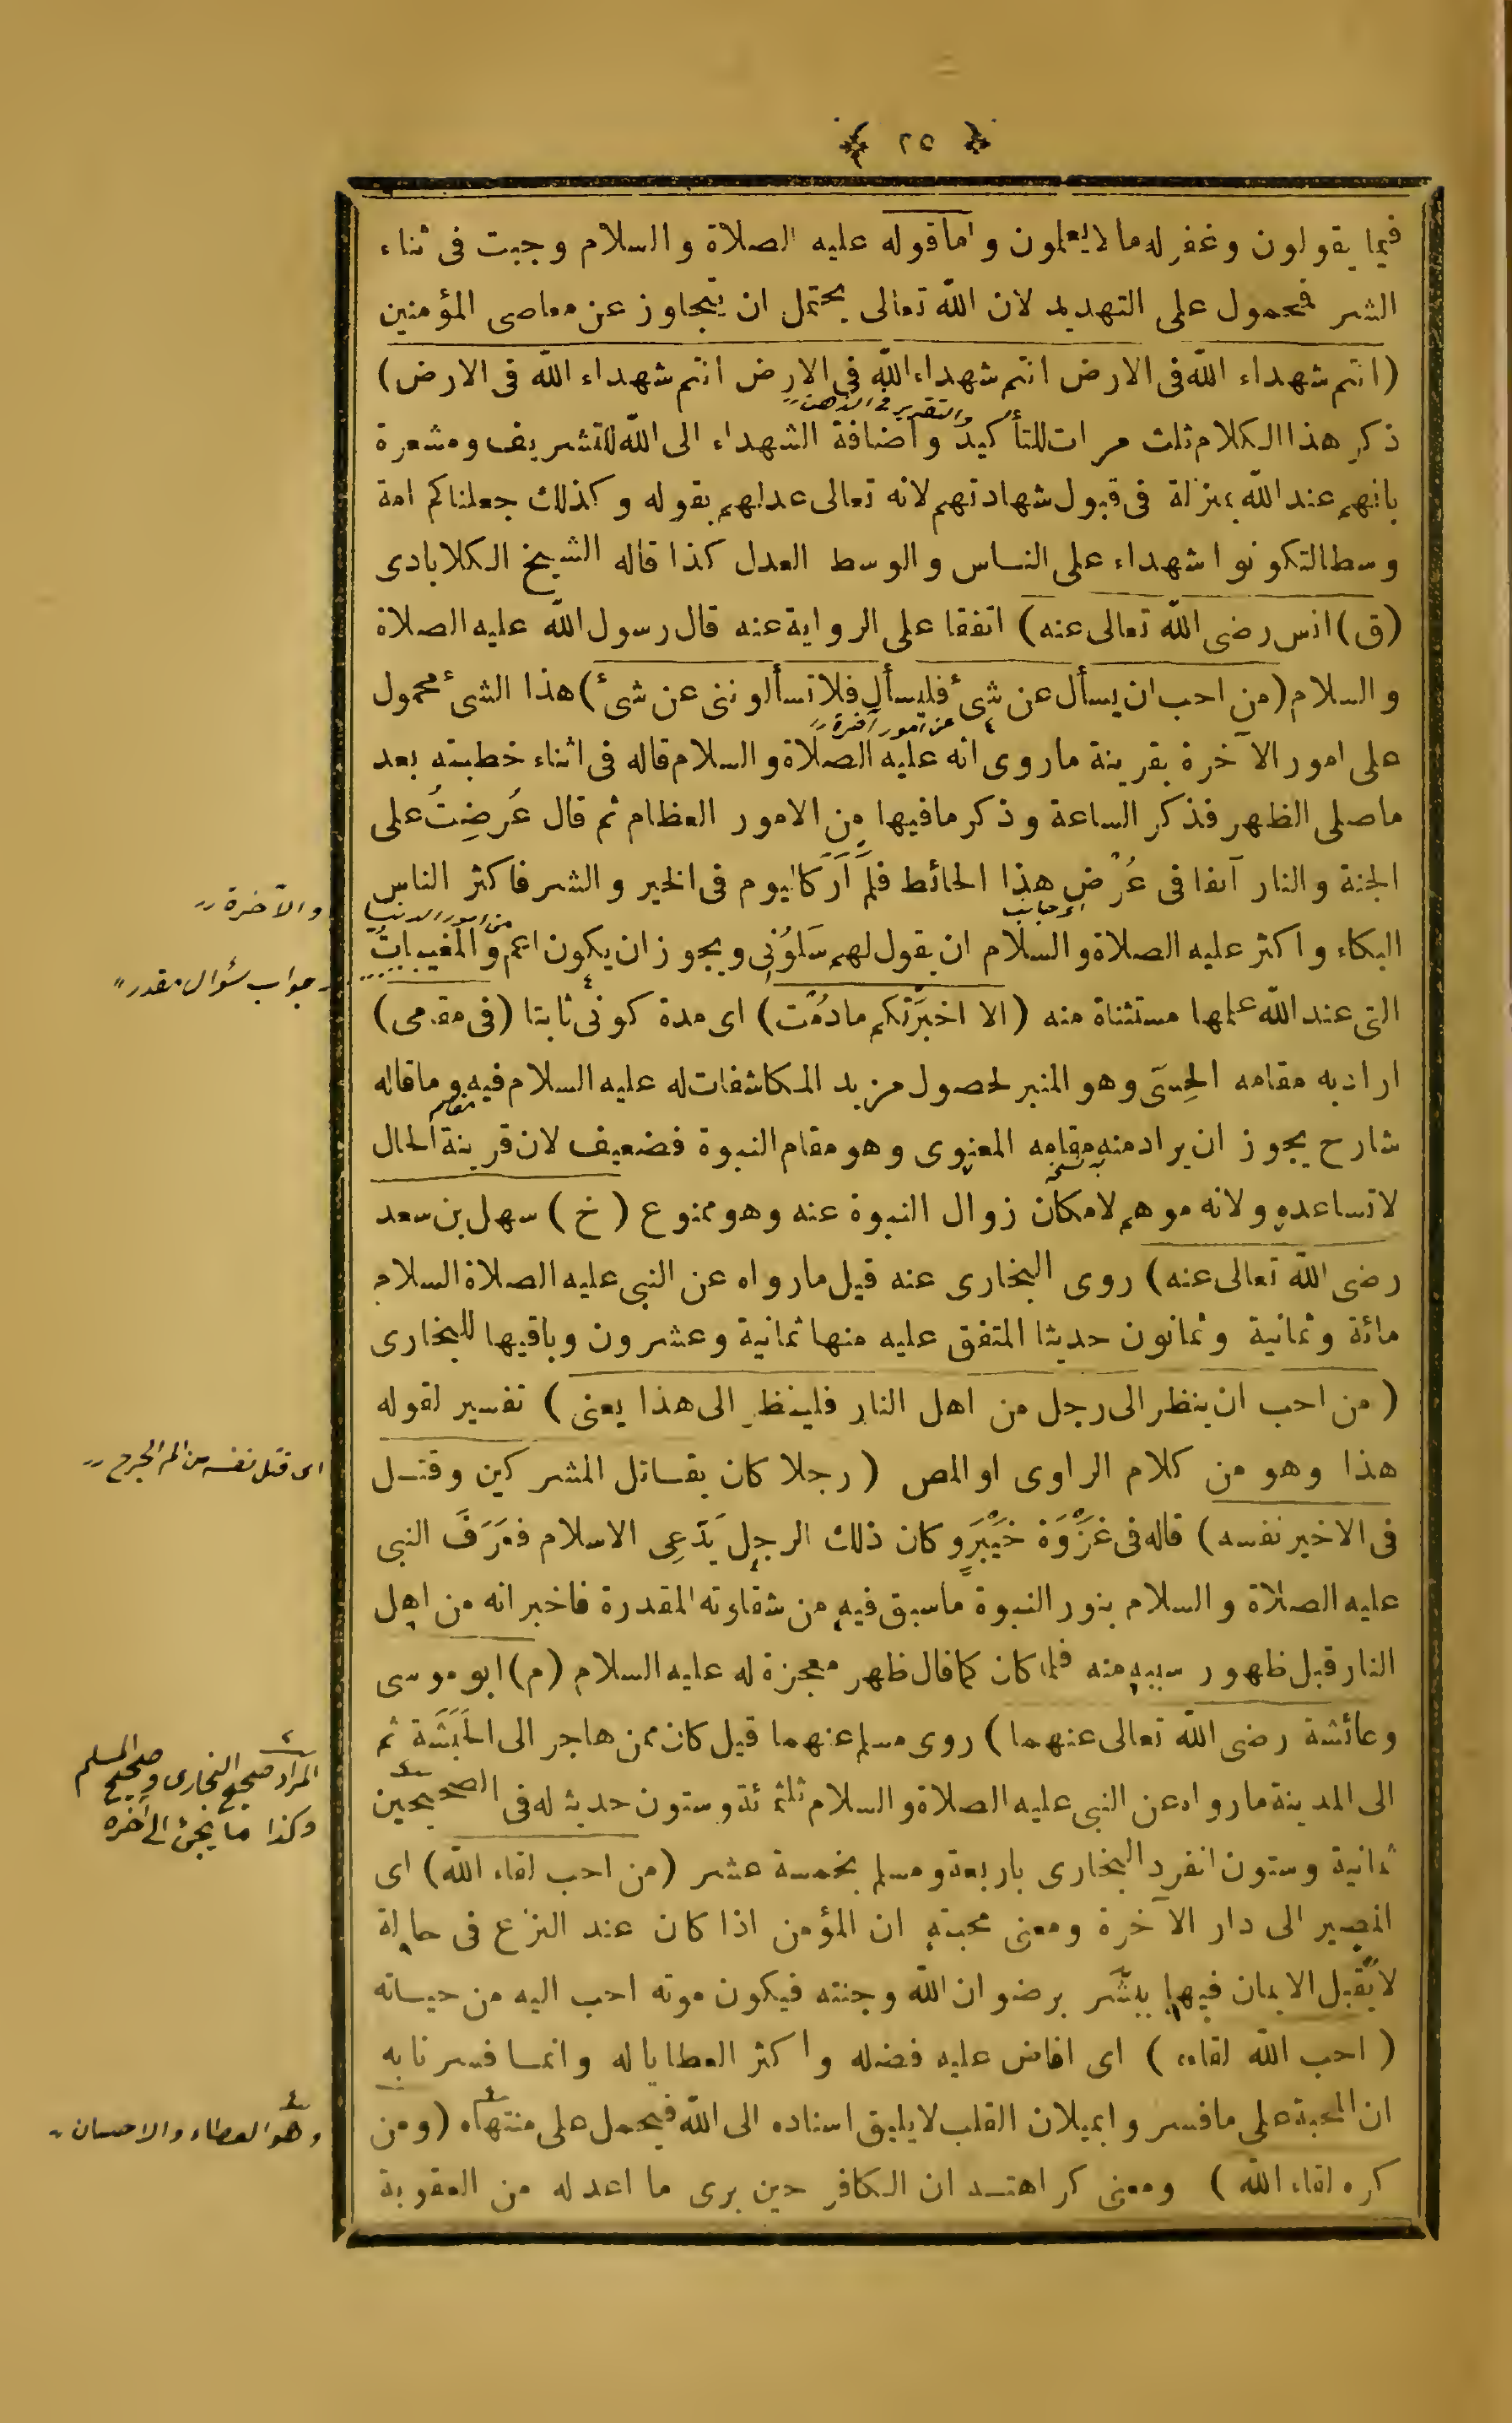 ٢٥
فيما يقولون وغفر له ما لا يعلمون واما قوله عليه الصلاة والسلام وجبت فى ثناء
الشر فمحمول على التهديد لان الله تعالى يحتمل ان يتجاوز عن معاصى المؤمنين
(انتم شهداء الله فى الارض انتم شهداء الله فى الارض انتم شهداء الله فى الارض)
والتقرير فى الذهن
ذكر هذا الكلام ثلث مرات للتأكيد واضافة الشهداء الى الله للتشريف ومشعرة
بانهم عند الله بمنزلة فى قبول شهادتهم لانه تعالى عدلهم بقوله وكذلك جعلناكم امة
وسطا لتكونوا شهداء على الناس والوسط العدل كذا قاله الشيخ الكلابادى
(ق) انس رضى الله تعالى عنه) اتفقا على الرواية عنه قال رسول الله عليه الصلاة
والسلام (من احب ان يسأل عن شئ فليسأل فلا تسألوننى عن شئ) هذا الشئ محمول
٤ عن امور آخرة
على امور الآخرة بقرينة ماروى انه عليه الصلاة والسلام قاله فى اثناء خطبته بعد
ماصلى الظهر فذكر الساعة وذكر مافيها من الامور العظام ثم قال عُرِضَتْ على
الجنة والنار آنفا فى عُرْضِ هذا الحائط فلم اَرَ كاليوم فى الخير والشر فاكثر الناس
والآخرة
اى جانب
من امور الدنيا
البكاء واكثر عليه الصلاة والسلام ان يقول لهم سَلُونى ويجوز ان يكون اعم والمغيبات
جواب سؤال مقدر
التى عند الله علمها مستثناة منه (الا اخبرتكم مادُمْت) اى مدة كونى ثابتا (فى مقامى)
اراد به مقامه الحِسىّ وهو المنبر لحصول مزيد المكاشفات له عليه السلام فيه وماقاله
شارح يجوز ان يراد منه مقامه المعنوى وهو مقام النبوة فضعيف لان قرينة الحال
لاتساعده ولانه موهم لامكان زوال النبوة عنه وهو ممنوع (خ) سهل بن سعد
رضى الله تعالى عنه) روى البخارى عنه قيل مارواه عن النبى عليه الصلاة السلام
مائة وثمانية وثمانون حديثا المتفق عليه منها ثمانية وعشرون وباقيها للبخارى
(من احب ان ينظر الى رجل من اهل النار فلينظر الى هذا يعنى) تفسير لقوله
اى قتل نفسه من الم الجرح
هذا وهو من كلام الراوى او المص (رجلا كان يقاتل المشركين وقتل
فى الاخير نفسه) قاله فى غَزْوَة خَيْبَرَ وكان ذلك الرجل يَدَّعِى الاسلام فعَرَفَ النبى
عليه الصلاة والسلام بنور النبوة ماسبق فيه من شقاوته المقدرة فاخبر انه من اهل
النار قبل ظهور سببه منه فلما كان كما قال ظهر معجزة له عليه السلام (م) ابو موسى
وعائشة رضى الله تعالى عنهما) روى مسلم عنهما قيل كان ممن هاجر الى الحَبَشَة ثم
المراد صحيح البخارى وصحيح المسلم
وكذا ما يجئ الى آخره
الى المدينة مارواه عن النبى عليه الصلاة والسلام ثلثمائة وستون حديث له فى الصحيحين
ثمانية وستون انفرد البخارى باربعة ومسلم بخمسة عشر (من احب لقاء الله) اى
المصير الى دار الآخرة ومعنى محبته ان المؤمن اذا كان عند النزع فى حالة
لايُقبل الايمان فيها يبشّر برضوان الله وجنته فيكون موته احب اليه من حياته
(احب الله لقاءه) اى افاض عليه فضله واكثر العطايا له وانما فسرنا به
٤
وهو العطاء والاحسان
ان المحبة على مافسر وا بميلان القلب لايليق اسناده الى الله فيحمل على منتهاه (ومن
كره لقاء الله) ومعنى كراهته ان الكافر حين يرى ما اعد له من العقوبة